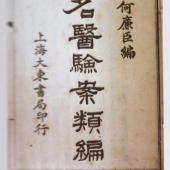 何廉臣編
名醫驗案類編
上海大東書局印行